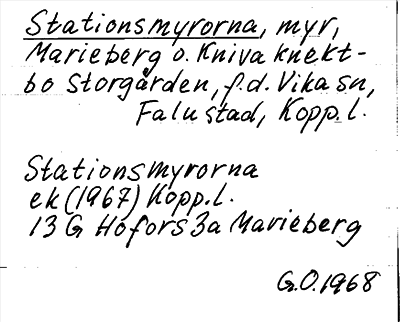 Stationsmyrorna, myr,
Marieberg o. Kniva knekt-
bo Storgården, f.d. Vika sn,
Falu stad, Kopp. l.
Stationsmyrorna
ek (1967) Kopp. l.
13 G Hofors 3a Marieberg
G.O. 1968